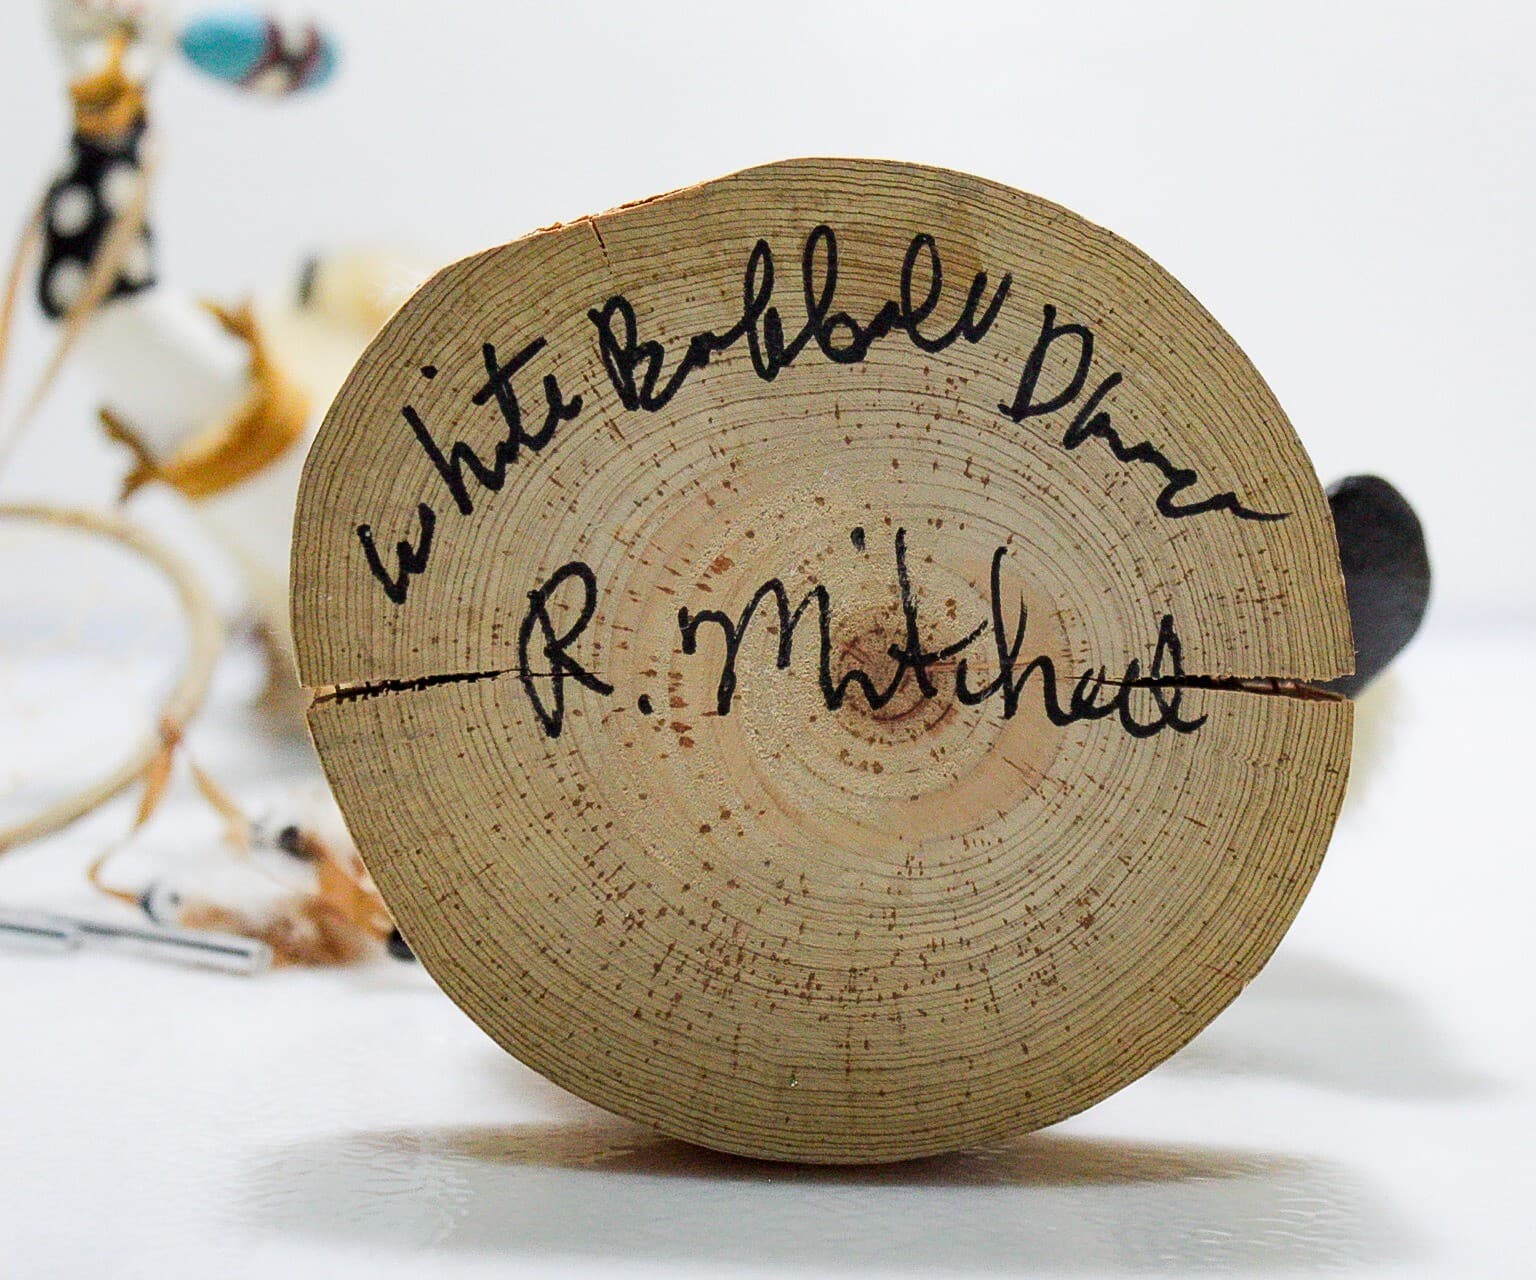 White Buffalo Dancer
R. Mitchell